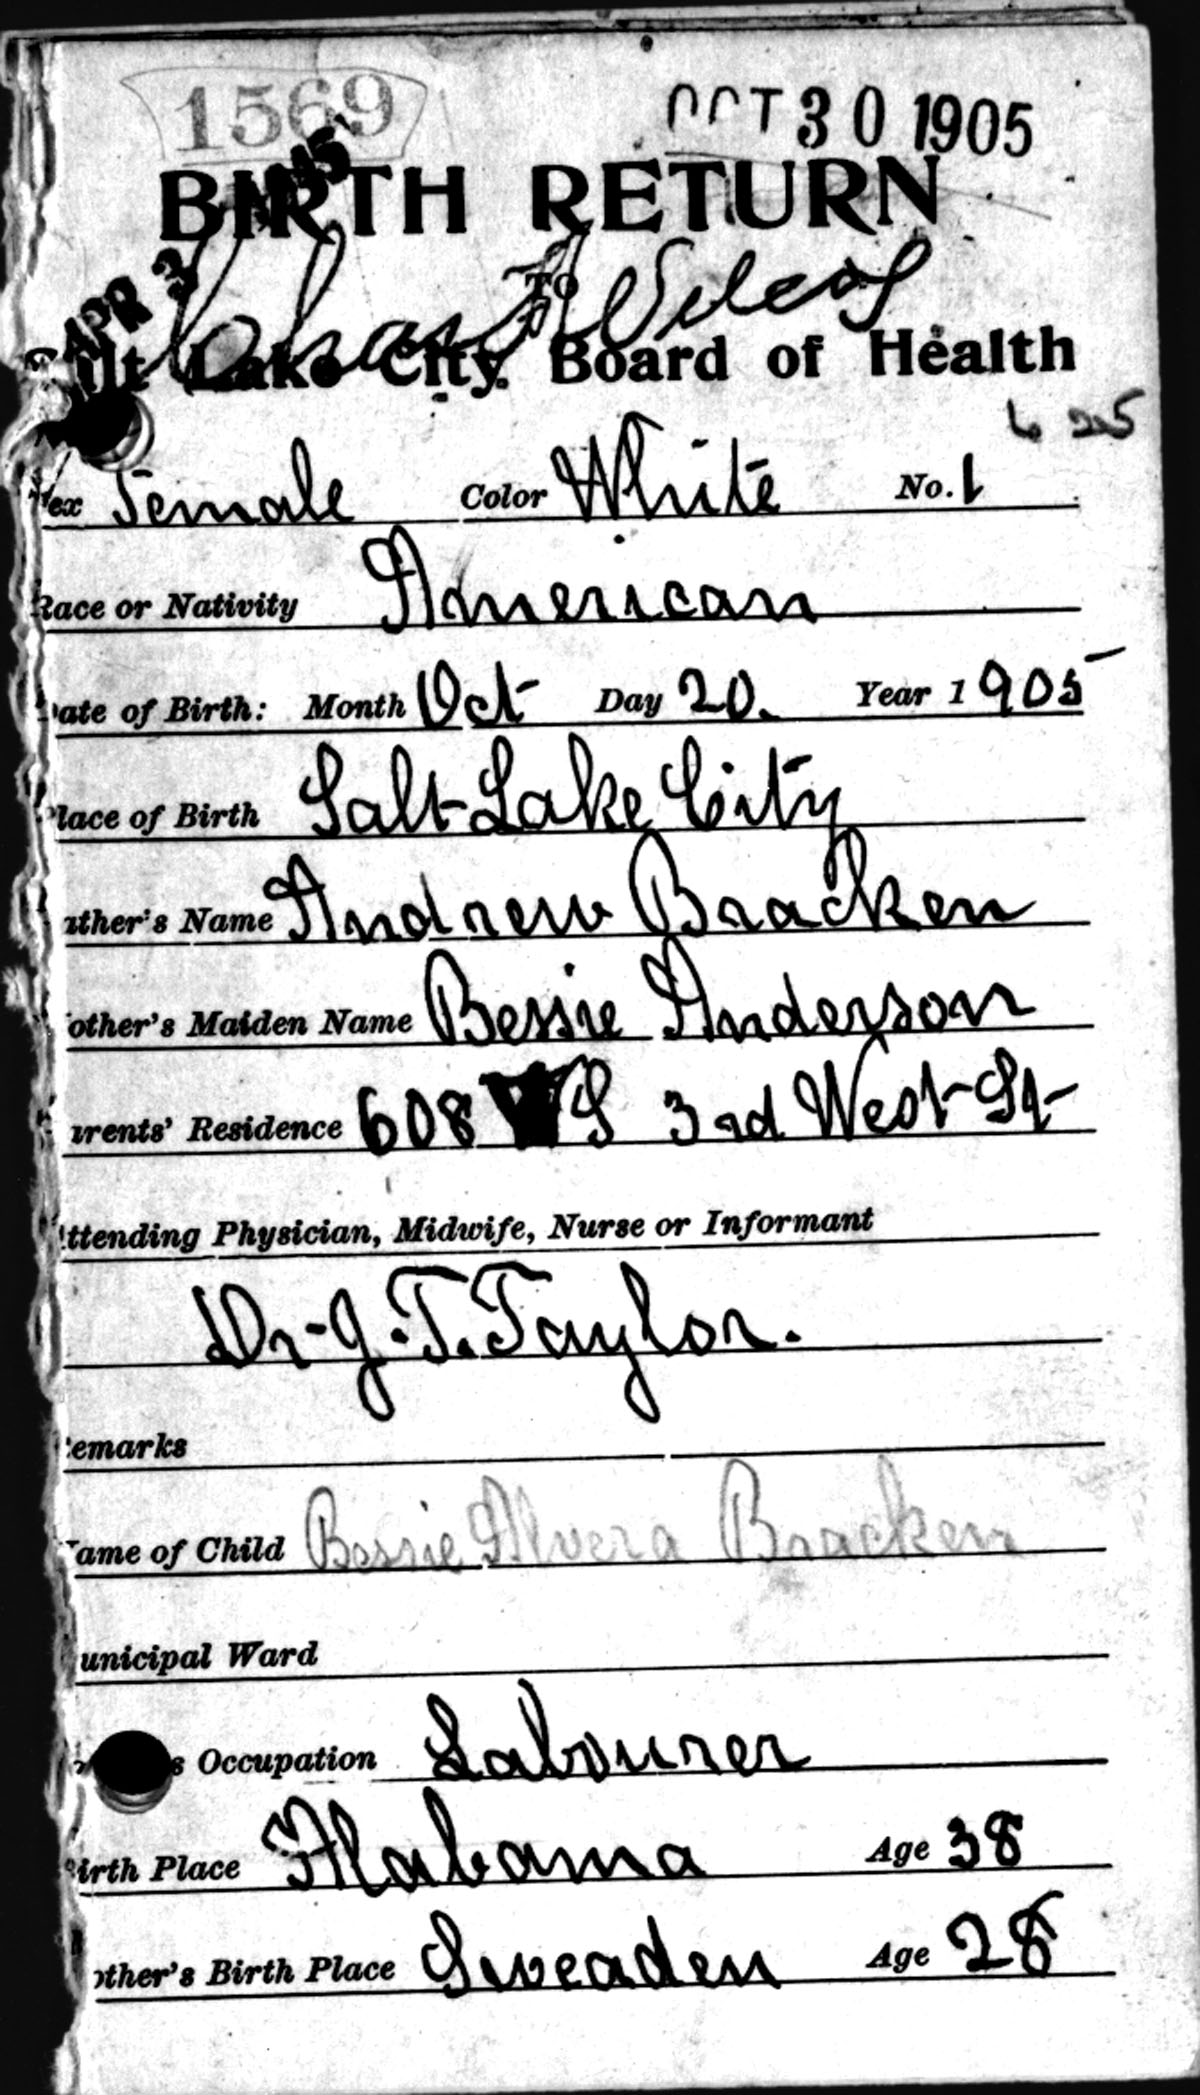 1569
OCT 30 1905
BIRTH RETURN
TO
APR 3
Salt Lake City Board of Health
625
Sex Female Color White No. 1
Race or Nativity American
Date of Birth: Month Oct Day 20. Year 1905
Place of Birth Salt Lake City
ather's Name Andrew Bracken
other's Maiden Name Bessie Anderson
arents' Residence 608 S 3rd West St
Attending Physician, Midwife, Nurse or Informant
Dr. J. T. Taylor.
emarks
ame of Child Bessie Alvera Bracken
unicipal Ward
s Occupation Labourer
irth Place Alabama Age 38
other's Birth Place Sweaden Age 28